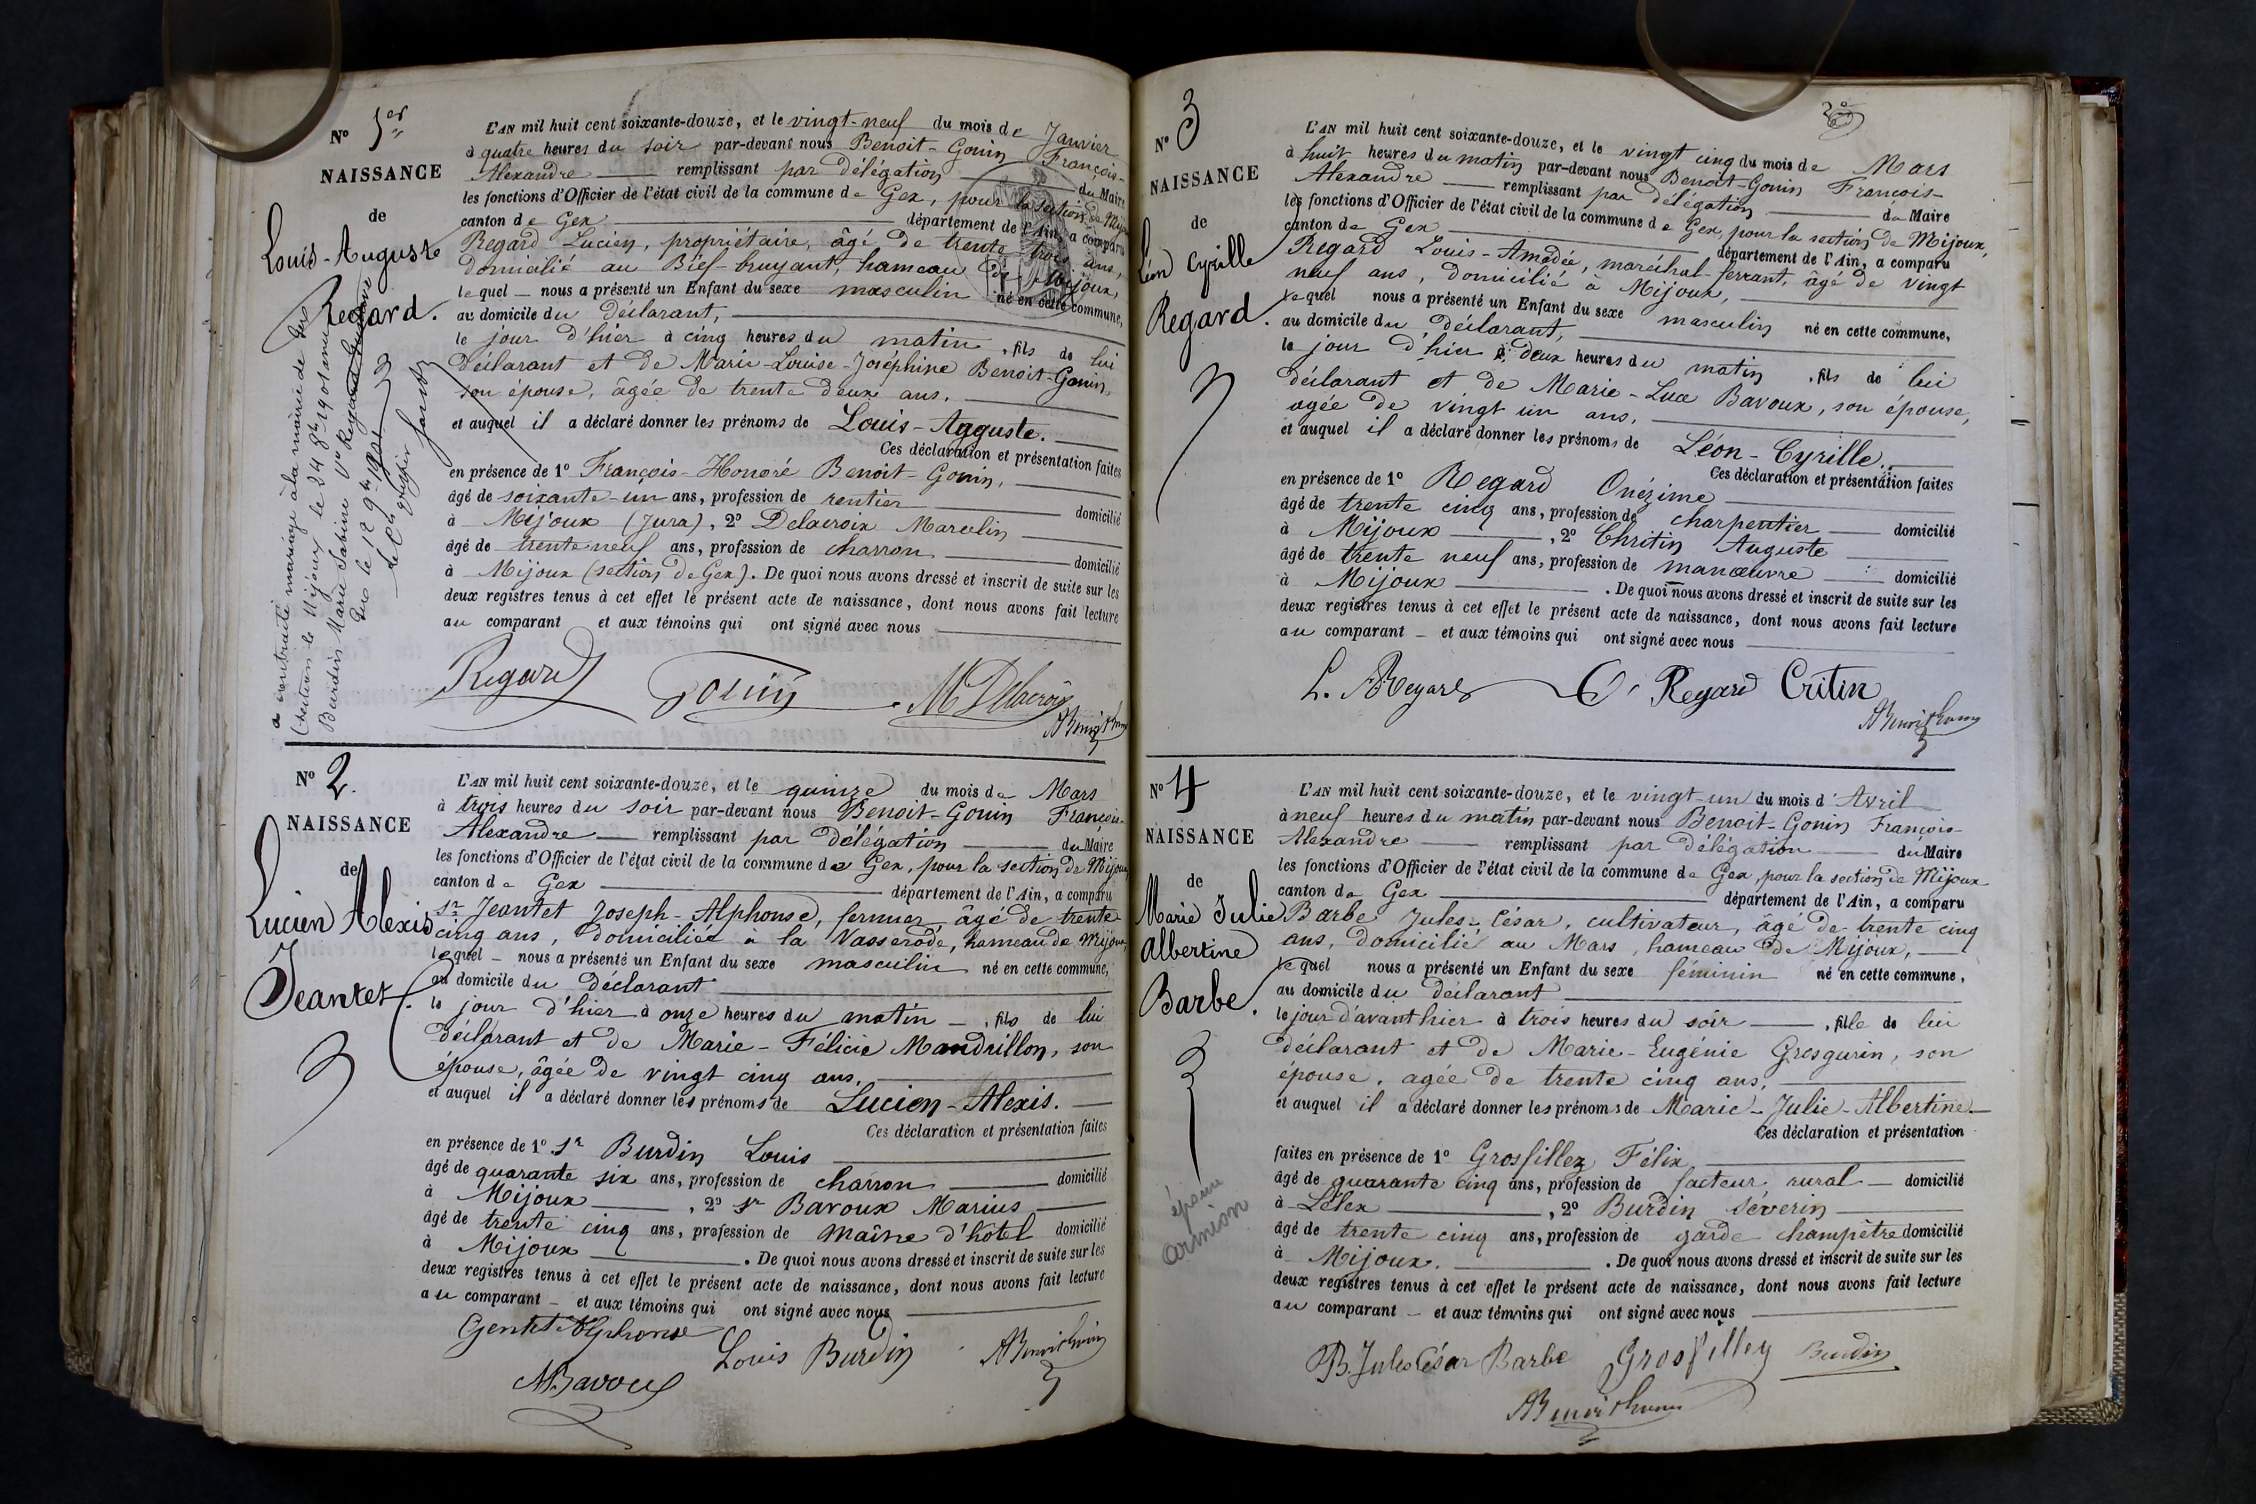 N° 1er
NAISSANCE
de
Louis-Auguste
Regard.
a contracté mariage à la mairie de Gex
(section de Mijoux le 24 8bre 1901 avec
Burdin Marie Sabine Ve Regard
Gex le 12 9bre 1901
Le Ch greffier
L'AN mil huit cent soixante-douze, et le vingt-neuf du mois de Janvier
à quatre heures du soir par-devant nous Benoit-Gonin François-
Alexandre remplissant par délégation du Maire
les fonctions d'Officier de l'état civil de la commune de Gex, pour la section de Mijoux
canton de Gex département de l'Ain, a comparu
Regard Lucien, propriétaire, âgé de trente trois ans,
domicilié au Bief-bruyant, hameau de Mijoux,
lequel nous a présenté un Enfant du sexe masculin né en cette commune,
au domicile du déclarant,
le jour d'hier à cinq heures du matin, fils de lui
déclarant et de Marie-Louise-Joséphine Benoit-Gonin,
son épouse, âgée de trente deux ans.
et auquel il a déclaré donner les prénoms de Louis-Auguste.
Ces déclaration et présentation faites
en présence de 1° François-Honoré Benoit-Gonin,
âgé de soixante-un ans, profession de rentier domicilié
à Mijoux (Jura), 2° Delacroix Marcelin
âgé de trente neuf ans, profession de charron domicilié
à Mijoux (section de Gex). De quoi nous avons dressé et inscrit de suite sur les
deux registres tenus à cet effet le présent acte de naissance, dont nous avons fait lecture
au comparant et aux témoins qui ont signé avec nous
Regard Gonin M Delacroix
N° 2.
NAISSANCE
de
Lucien Alexis
Jeantet.
L'AN mil huit cent soixante-douze, et le quinze du mois de Mars
à trois heures du soir par-devant nous Benoit-Gonin François-
Alexandre remplissant par délégation du Maire
les fonctions d'Officier de l'état civil de la commune de Gex, pour la section de Mijoux
canton de Gex département de l'Ain, a comparu
Sr Jeantet Joseph-Alphonse, fermier, âgé de trente
cinq ans, domiciliée à la Vasserode, hameau de Mijoux,
lequel nous a présenté un Enfant du sexe masculin né en cette commune,
au domicile du déclarant
le jour d'hier à onze heures du matin, fils de lui
déclarant et de Marie-Félicie Mandrillon, son
épouse, âgée de vingt cinq ans,
et auquel il a déclaré donner les prénoms de Lucien-Alexis.
Ces déclaration et présentation faites
en présence de 1° Sr Burdin Louis
âgé de quarante six ans, profession de charron domicilié
à Mijoux, 2° Sr Bavoux Marius
âgé de trente cinq ans, profession de maître d'hôtel domicilié
à Mijoux. De quoi nous avons dressé et inscrit de suite sur les
deux registres tenus à cet effet le présent acte de naissance, dont nous avons fait lecture
au comparant et aux témoins qui ont signé avec nous
Gentet Alphonse Louis Burdin
M Bavoux
N° 3
NAISSANCE
de
Léon Cyrille
Regard.
L'AN mil huit cent soixante-douze, et le vingt cinq du mois de Mars
à huit heures du matin par-devant nous Benoit-Gonin François-
Alexandre remplissant par délégation du Maire
les fonctions d'Officier de l'état civil de la commune de Gex, pour la section de Mijoux,
canton de Gex département de l'Ain, a comparu
Regard Louis-Amédée, maréchal-ferrant, âgé de vingt
neuf ans, domicilié à Mijoux,
lequel nous a présenté un Enfant du sexe masculin né en cette commune,
au domicile du déclarant,
le jour d'hier à deux heures du matin, fils de lui
déclarant et de Marie-Luce Bavoux, son épouse,
agée de vingt un ans.
et auquel il a déclaré donner les prénoms de Léon-Cyrille.
Ces déclaration et présentation faites
en présence de 1° Regard Onézime
âgé de trente cinq ans, profession de charpentier domicilié
à Mijoux, 2° Chritin Auguste
âgé de trente neuf ans, profession de manœuvre domicilié
à Mijoux. De quoi nous avons dressé et inscrit de suite sur les
deux registres tenus à cet effet le présent acte de naissance, dont nous avons fait lecture
au comparant et aux témoins qui ont signé avec nous
L. A Regard O Regard Critin
N° 4
NAISSANCE
de
Marie Julie
Albertine
Barbe.
épouse
Armion
L'AN mil huit cent soixante-douze, et le vingt-un du mois d'Avril
à neuf heures du matin par-devant nous Benoit-Gonin François-
Alexandre remplissant par délégation du Maire
les fonctions d'Officier de l'état civil de la commune de Gex, pour la section de Mijoux
canton de Gex département de l'Ain, a comparu
Barbe Jules-César, cultivateur, âgé de trente cinq
ans, domicilié au Mars, hameau de Mijoux,
lequel nous a présenté un Enfant du sexe féminin né en cette commune,
au domicile du déclarant
le jour d'avant hier à trois heures du soir, fille de lui
déclarant et de Marie-Eugénie Grosgurin, son
épouse, agée de trente cinq ans,
et auquel il a déclaré donner les prénoms de Marie-Julie-Albertine
Ces déclaration et présentation
faites en présence de 1° Grosfillez Félix
âgé de quarante cinq ans, profession de facteur rural domicilié
à Lélex, 2° Burdin Séverin
âgé de trente cinq ans, profession de garde champêtre domicilié
à Mijoux. De quoi nous avons dressé et inscrit de suite sur les
deux registres tenus à cet effet le présent acte de naissance, dont nous avons fait lecture
au comparant et aux témoins qui ont signé avec nous
B. Jules César Barbe Grosfilley Burdin